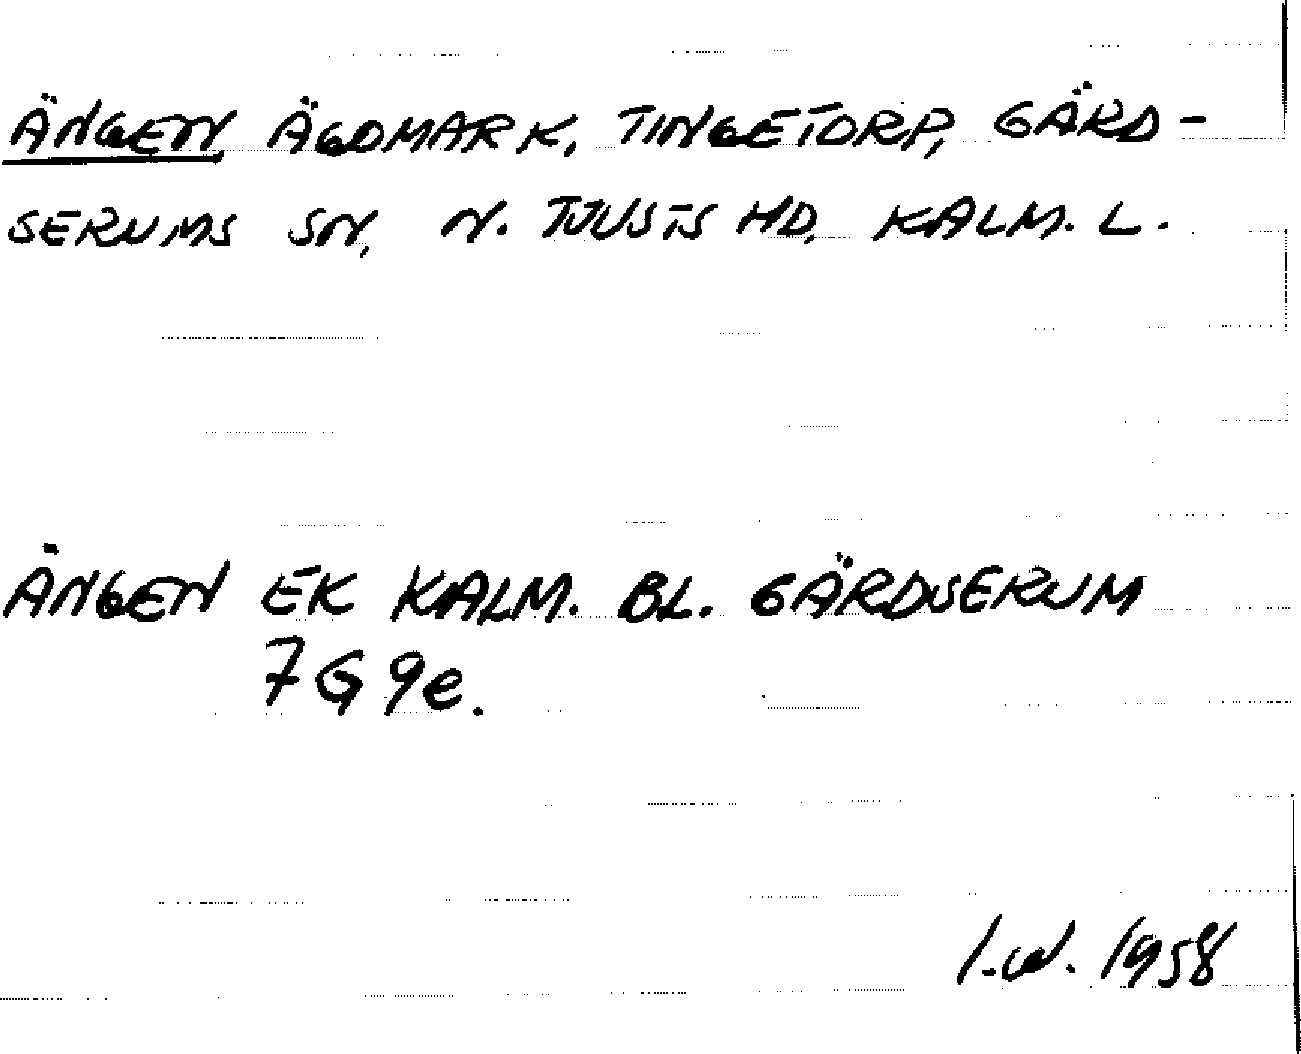 ÄNGEN, ÄGOMARK, TINGETORP, GÄRD-
SERUMS SN, N. TJUSTS HD, KALM. L.
ÄNGEN EK KALM. BL. GÄRDSERUM
7G 9e.
I.W. 1958